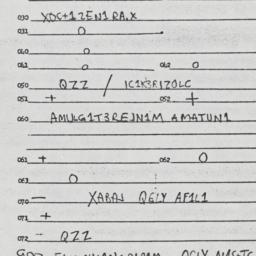 030 XDC+1ZEN1RA.X
031 O
040 O
041 O 042 O
050 QZZ / IC1K3R1ZOLC
051 + 052 +
060 AMULG1T3REJN1M AMATUN1
061 + 062 O
063 O
070 — XABAJ QGLY AF1L1
071 +
072 - QZZ